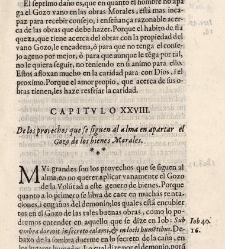 El septimo daño es, que en quanto el hombre no apa
ga el gozo vano en las obras Morales, está mas incapaz
paz para recebir consejo, i enseñança razonable acerca
ca de las obras que debe hazer. Porque el habito de fla
queza, que tiene acerca del obrar con la propiedad del
vano Gozo, le encadena, ó para que no tenga el consejo
ageno por mejor, ó para que aunque le tẽga por tal,
no le quiera seguir, no teniendo en sí animo para ello.
Estos afloxan mucho en la caridad para con Dios, i el
proximo. Porque el amor propio, que acerca de sus obras
tienen, les haze resfriar la caridad.
CAPITVLO XXVIII.
De los provechos que se siguen al alma en apartar el
Gozo de los bienes Morales.
MVi grandes son los provechos que se siguen al
alma en no querer aplicar vanamente el Gozo
de la Volũtad a este genero de bienes. Porque
quanto a lo primero se libra de caer en muchas tentaciones,
i engaños del demonio, los quales está encubiertos
en el Gozo de las tales buenas obras, como lo podemos
entender en aquello que se dize en Iob: Sub
umbra dormit in secreto calami, & in locis humentibus. De-
Iob 40.
16.